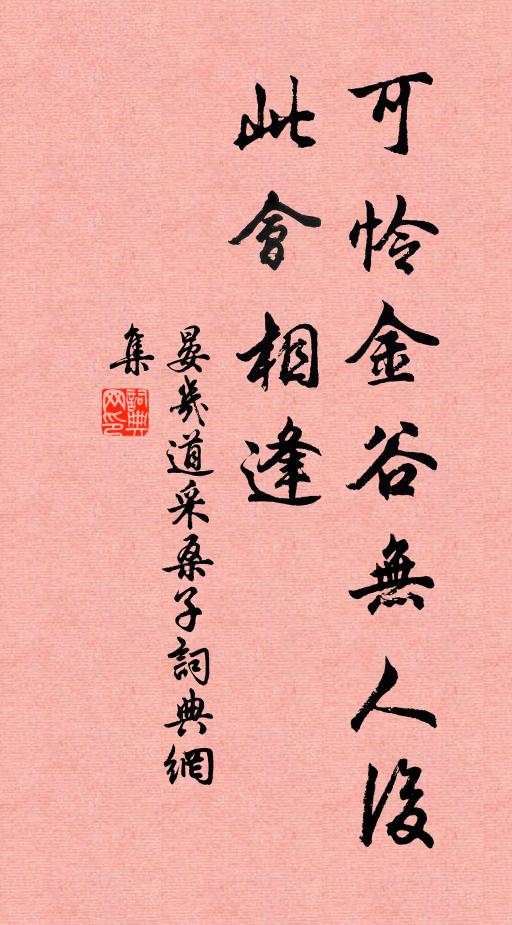 可憐金谷無人後
此會相逢
晏幾道采桑子詞典網
集
詞典
网印